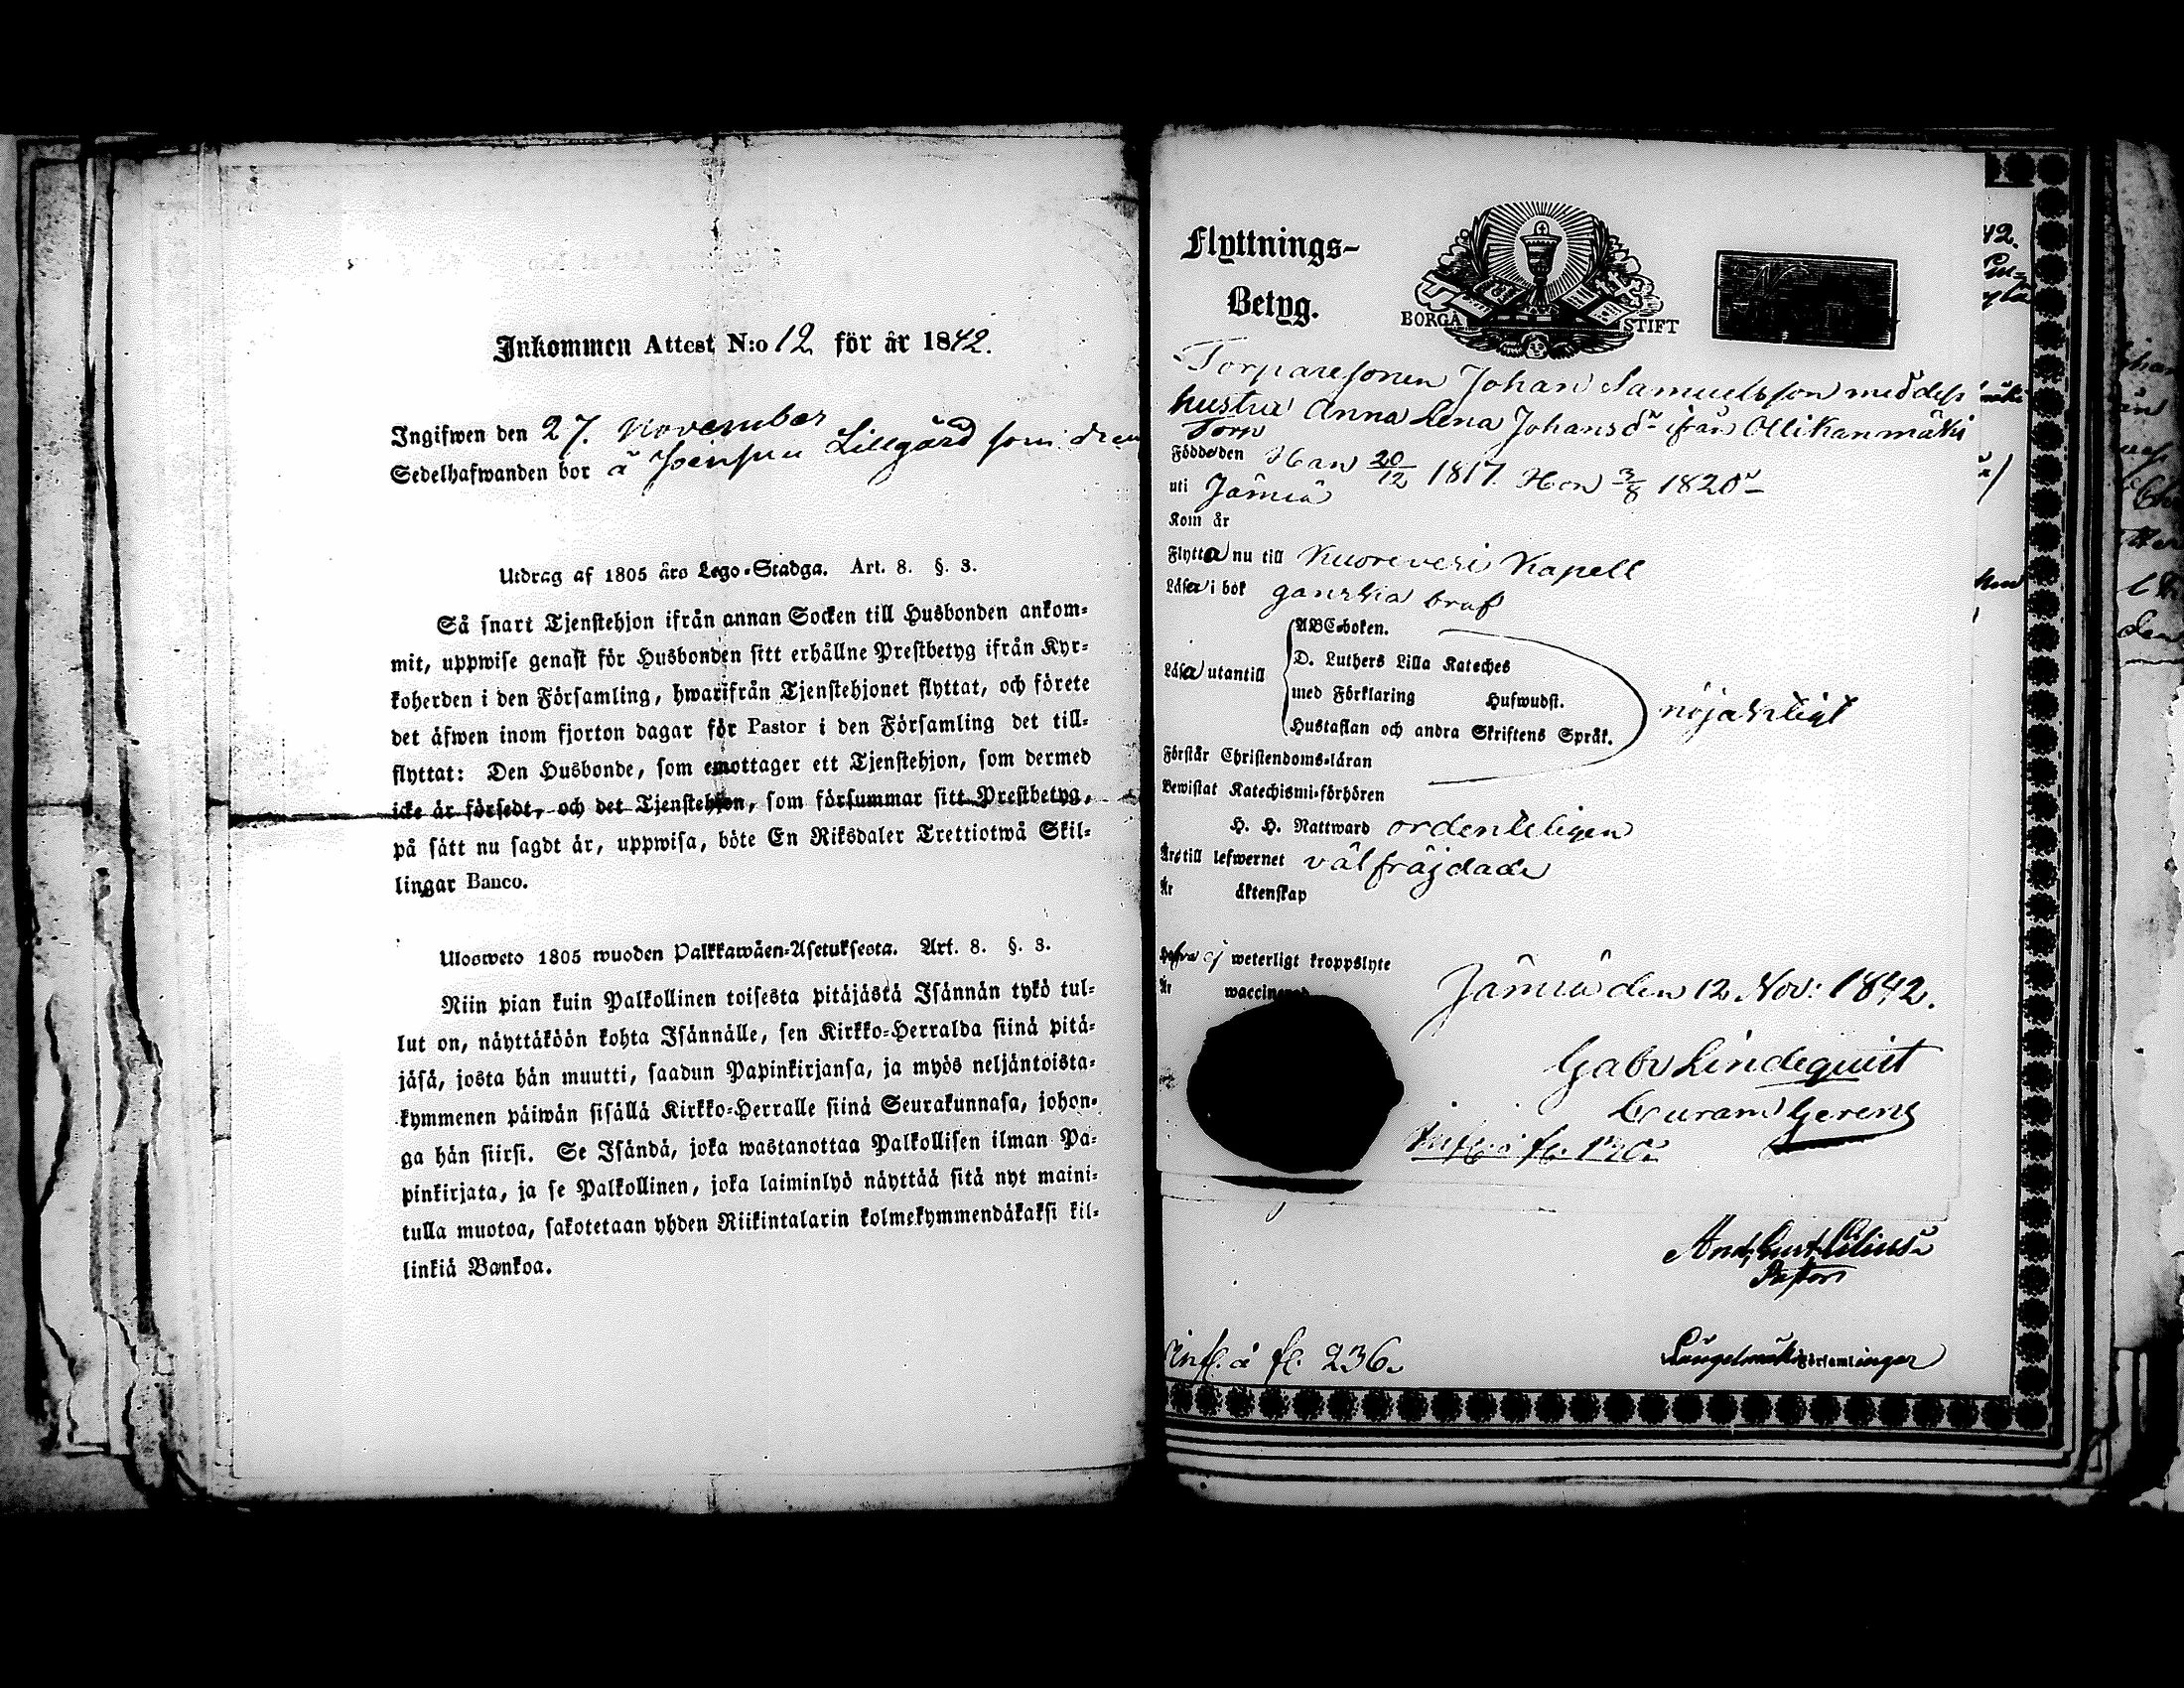 Inkommen Attest N:o 12 för år 1842.
Ingifwen den 27. November
Sedelhafwanden bor å Lillgård som dreng
Utdrag af 1805 års Lego-Stadga. Art. 8. §. 3.
Så snart Tjenstehjon ifrån annan Socken till Husbonden ankom-
mit, uppwise genast för Husbonden sitt erhållne Prestbetyg ifrån Kyr-
koherden i den Församling, hwarifrån Tjenstehjonet flyttat, och förete
det äfwen inom fjorton dagar för Pastor i den Församling det till-
flyttat: Den Husbonde, som emottager ett Tjenstehjon, som dermed
icke är försedt, och det Tjenstehjon, som försummar sitt Prestbetyg,
på sätt nu sagdt är, uppwisa, böte En Riksdaler Trettiotwå Skil-
lingar Banco.
Ulosweto 1805 wuoden Palkkawäen-Asetuksesta. Art. 8. §. 3.
Niin pian kuin Palkollinen toisesta pitäjästä Isännän tykö tul-
lut on, näyttäköön kohta Isännälle, sen Kirkko-Herralda siinä pitä-
jäsä, josta hän muutti, saadun Papinkirjansa, ja myös neljäntoista-
kymmenen päiwän sisällä Kirkko-Herralle siinä Seurakunnasa, johon-
ga hän siirsi. Se Isändä, joka wastanottaa Palkollisen ilman Pa-
pinkirjata, ja se Palkollinen, joka laiminlyö näyttää sitä nyt maini-
tulla muotoa, sakotetaan yhden Riikintalarin kolmekymmendäkaksi kil-
linkiä Bankoa.
Flyttnings-
Betyg.
BORGÅ STIFT
Torparesonen Johan Samuelsson med dess
hustru Anna Lena Johansdr ifrån Ollikanmäki
Torp
Födde den Han 20/12 1817. Hon 3/8 1820
uti Jämsä
Kom år
Flytta nu till Kuorevesi Kapell
Läsa i bok ganska braf
Läsa utantill
ABC-boken.
D. Luthers Lilla Kateches
med Förklaring Hufwudst.
Hustaflan och andra Skriftens Språk.
nöjaktligt
Förstår Christendoms-läran
Bewistat Katechismi-förhören
H. H. Nattward ordenteligen
Äro till lefwernet välfräjdade
Är äktenskap
Hafva ej weterligt kroppslyte
Är waccinerad
Jämsä den 12 Nov: 1842.
Gabr Lindequist
Curam Gerens
Pastor
Infl. å fl. 236.
Längelmäki Församlingar